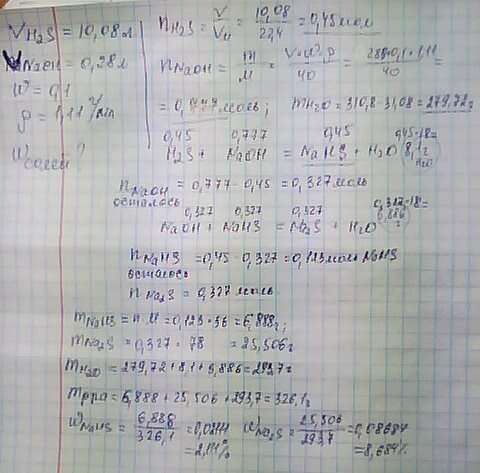 V H₂S = 10,08 л
V NaOH = 0,28 л
W = 0,1
ρ = 1,11 г/мл
Wсолей?
n H₂S = V/Vм = 10,08/22,4 = 0,45 моль
n NaOH = m/M = V·W·ρ/40 = 280·0,1·1,11/40 =
= 0,777 моль; m H₂O = 310,8 - 31,08 = 279,72 г
0,45 0,777 0,45 0,45·18=
H₂S + NaOH = NaHS + H₂O 8,1 г H₂O
n NaOH осталось = 0,777 - 0,45 = 0,327 моль
0,327 0,327 0,327 0,327·18=
NaOH + NaHS = Na₂S + H₂O 5,886 г
n NaHS осталось = 0,45 - 0,327 = 0,123 моль NaHS
n Na₂S = 0,327 моль
m NaHS = n·M = 0,123·56 = 6,888 г;
m Na₂S = 0,327·78 = 25,506 г
m H₂O = 279,72 + 8,1 + 5,886 = 293,7 г
m рра = 6,888 + 25,506 + 293,7 = 326,1 г
W NaHS = 6,888/326,1 = 0,0211 = 2,11%
W Na₂S = 25,506/293,7 = 0,08684 = 8,684%